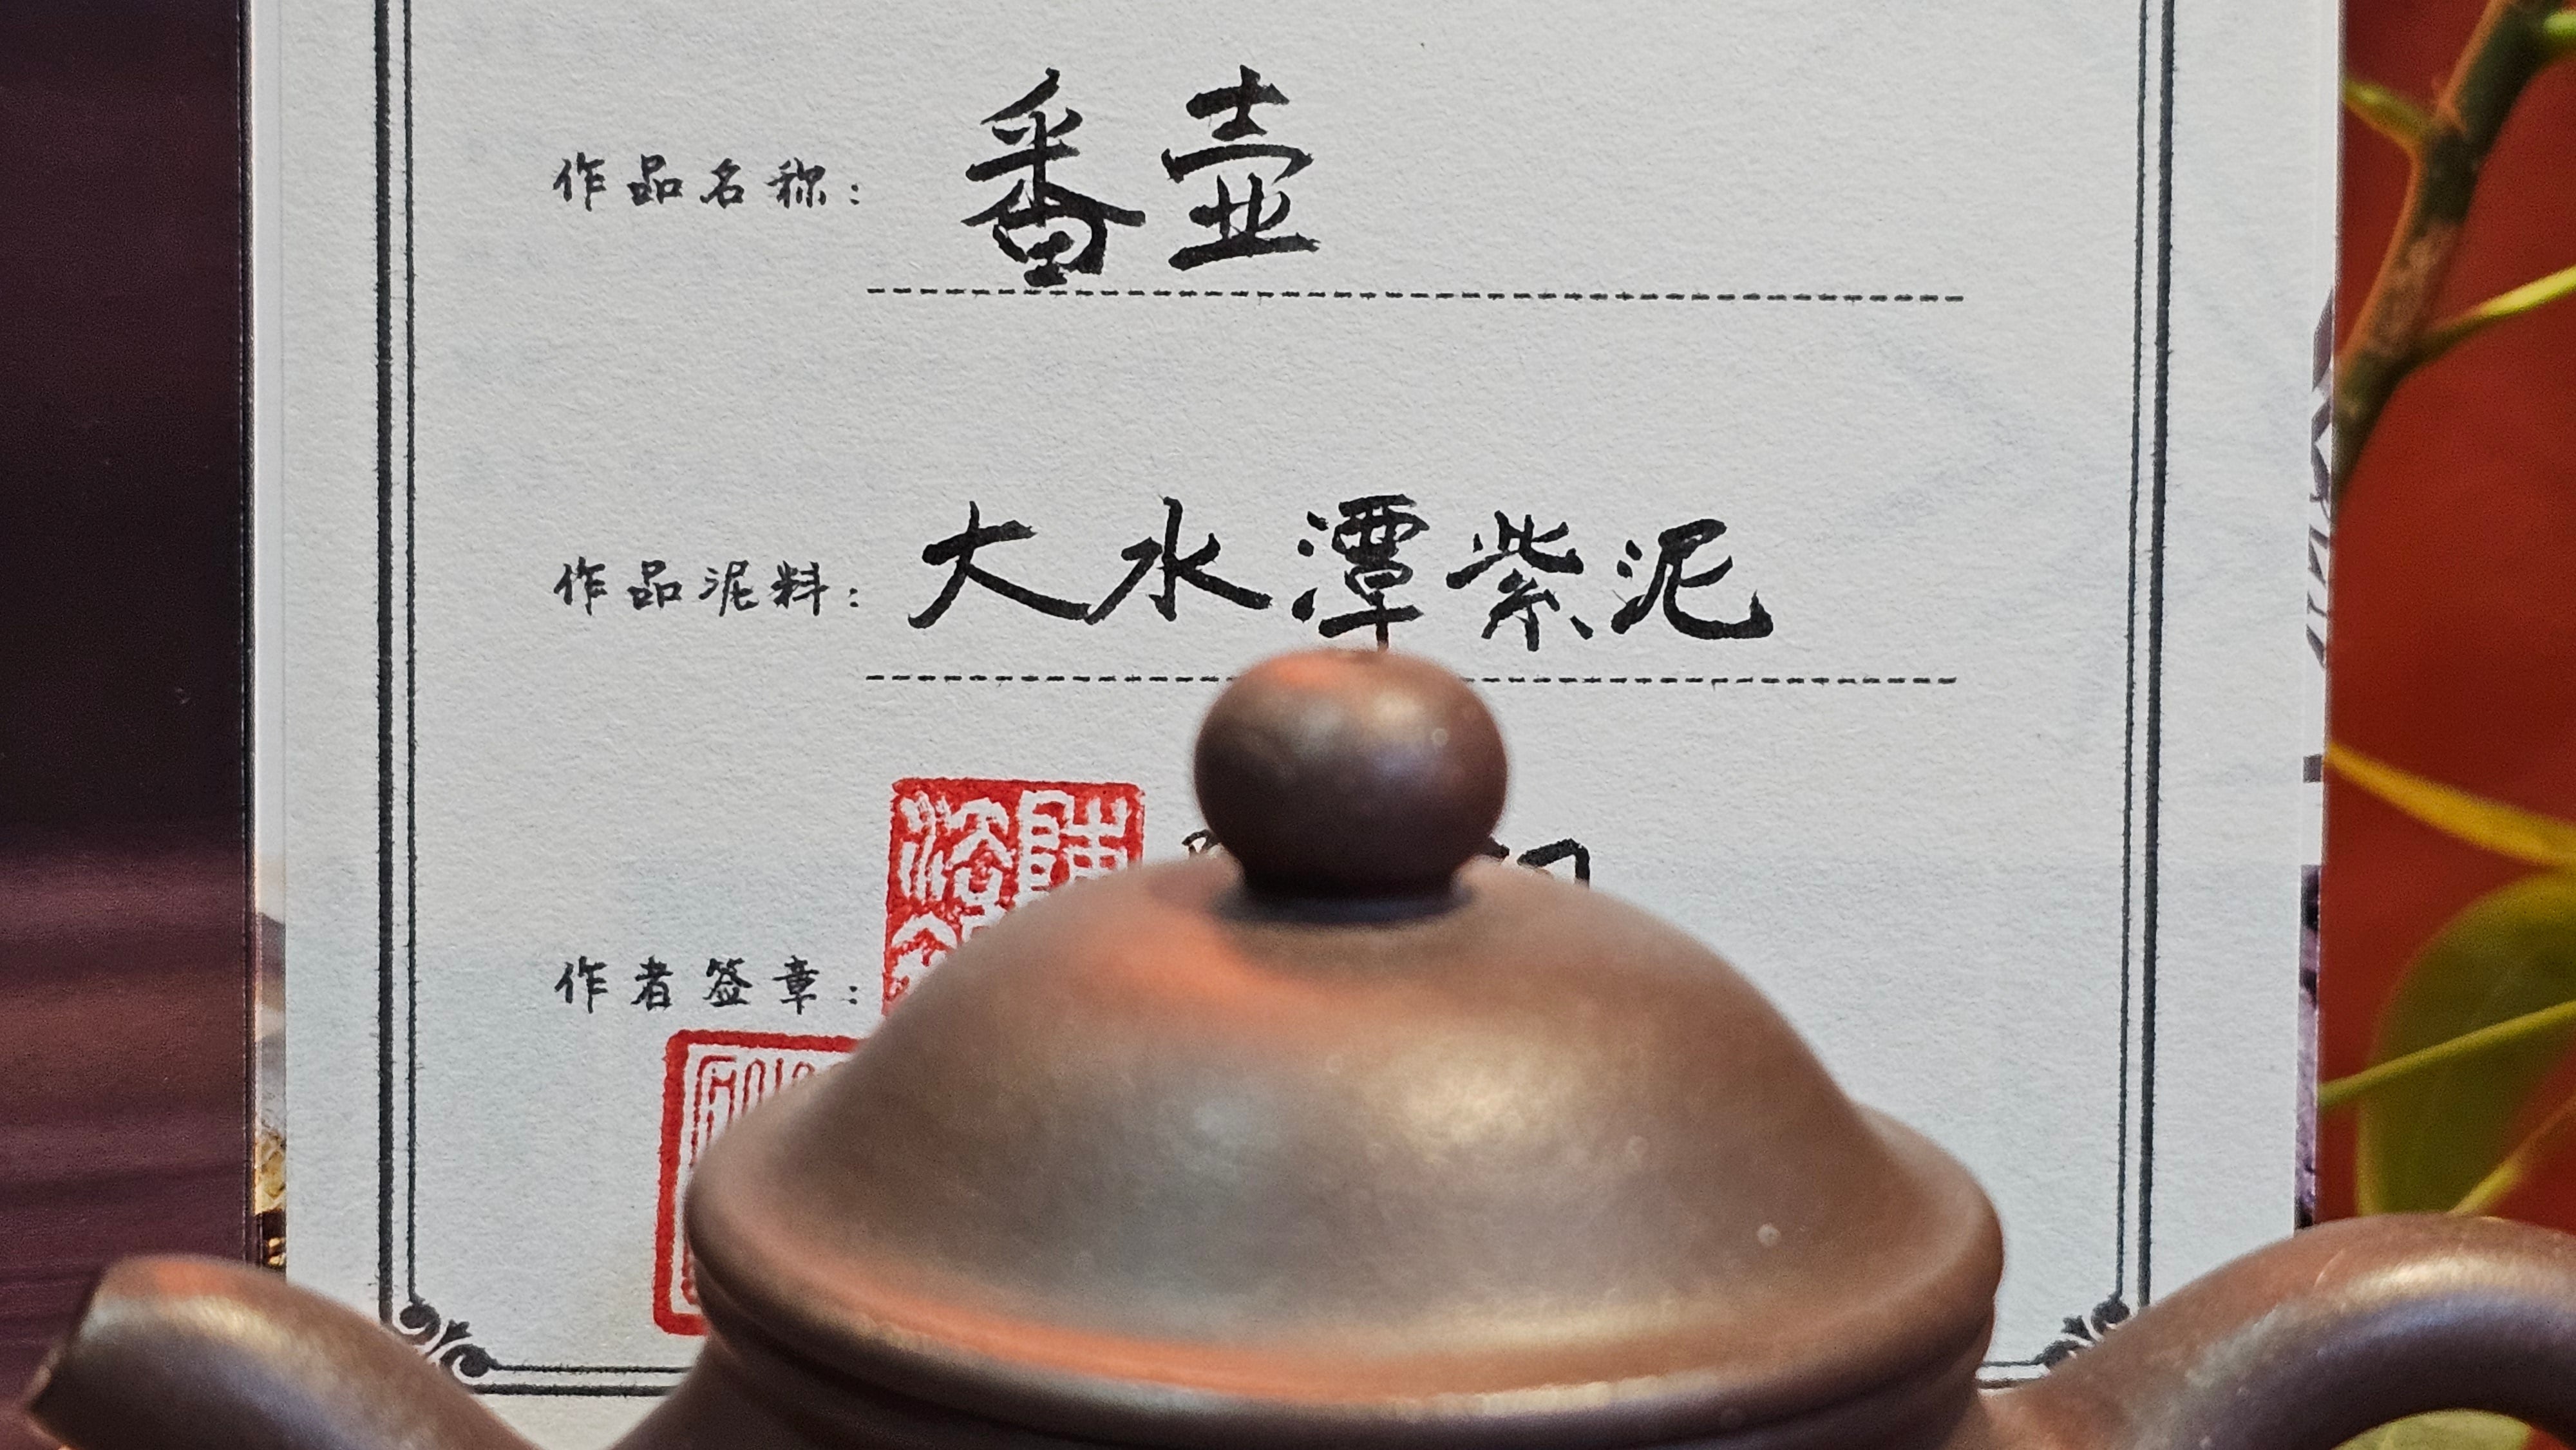 作品名称: 番壶
作品泥料: 大水潭紫泥
作者签章: